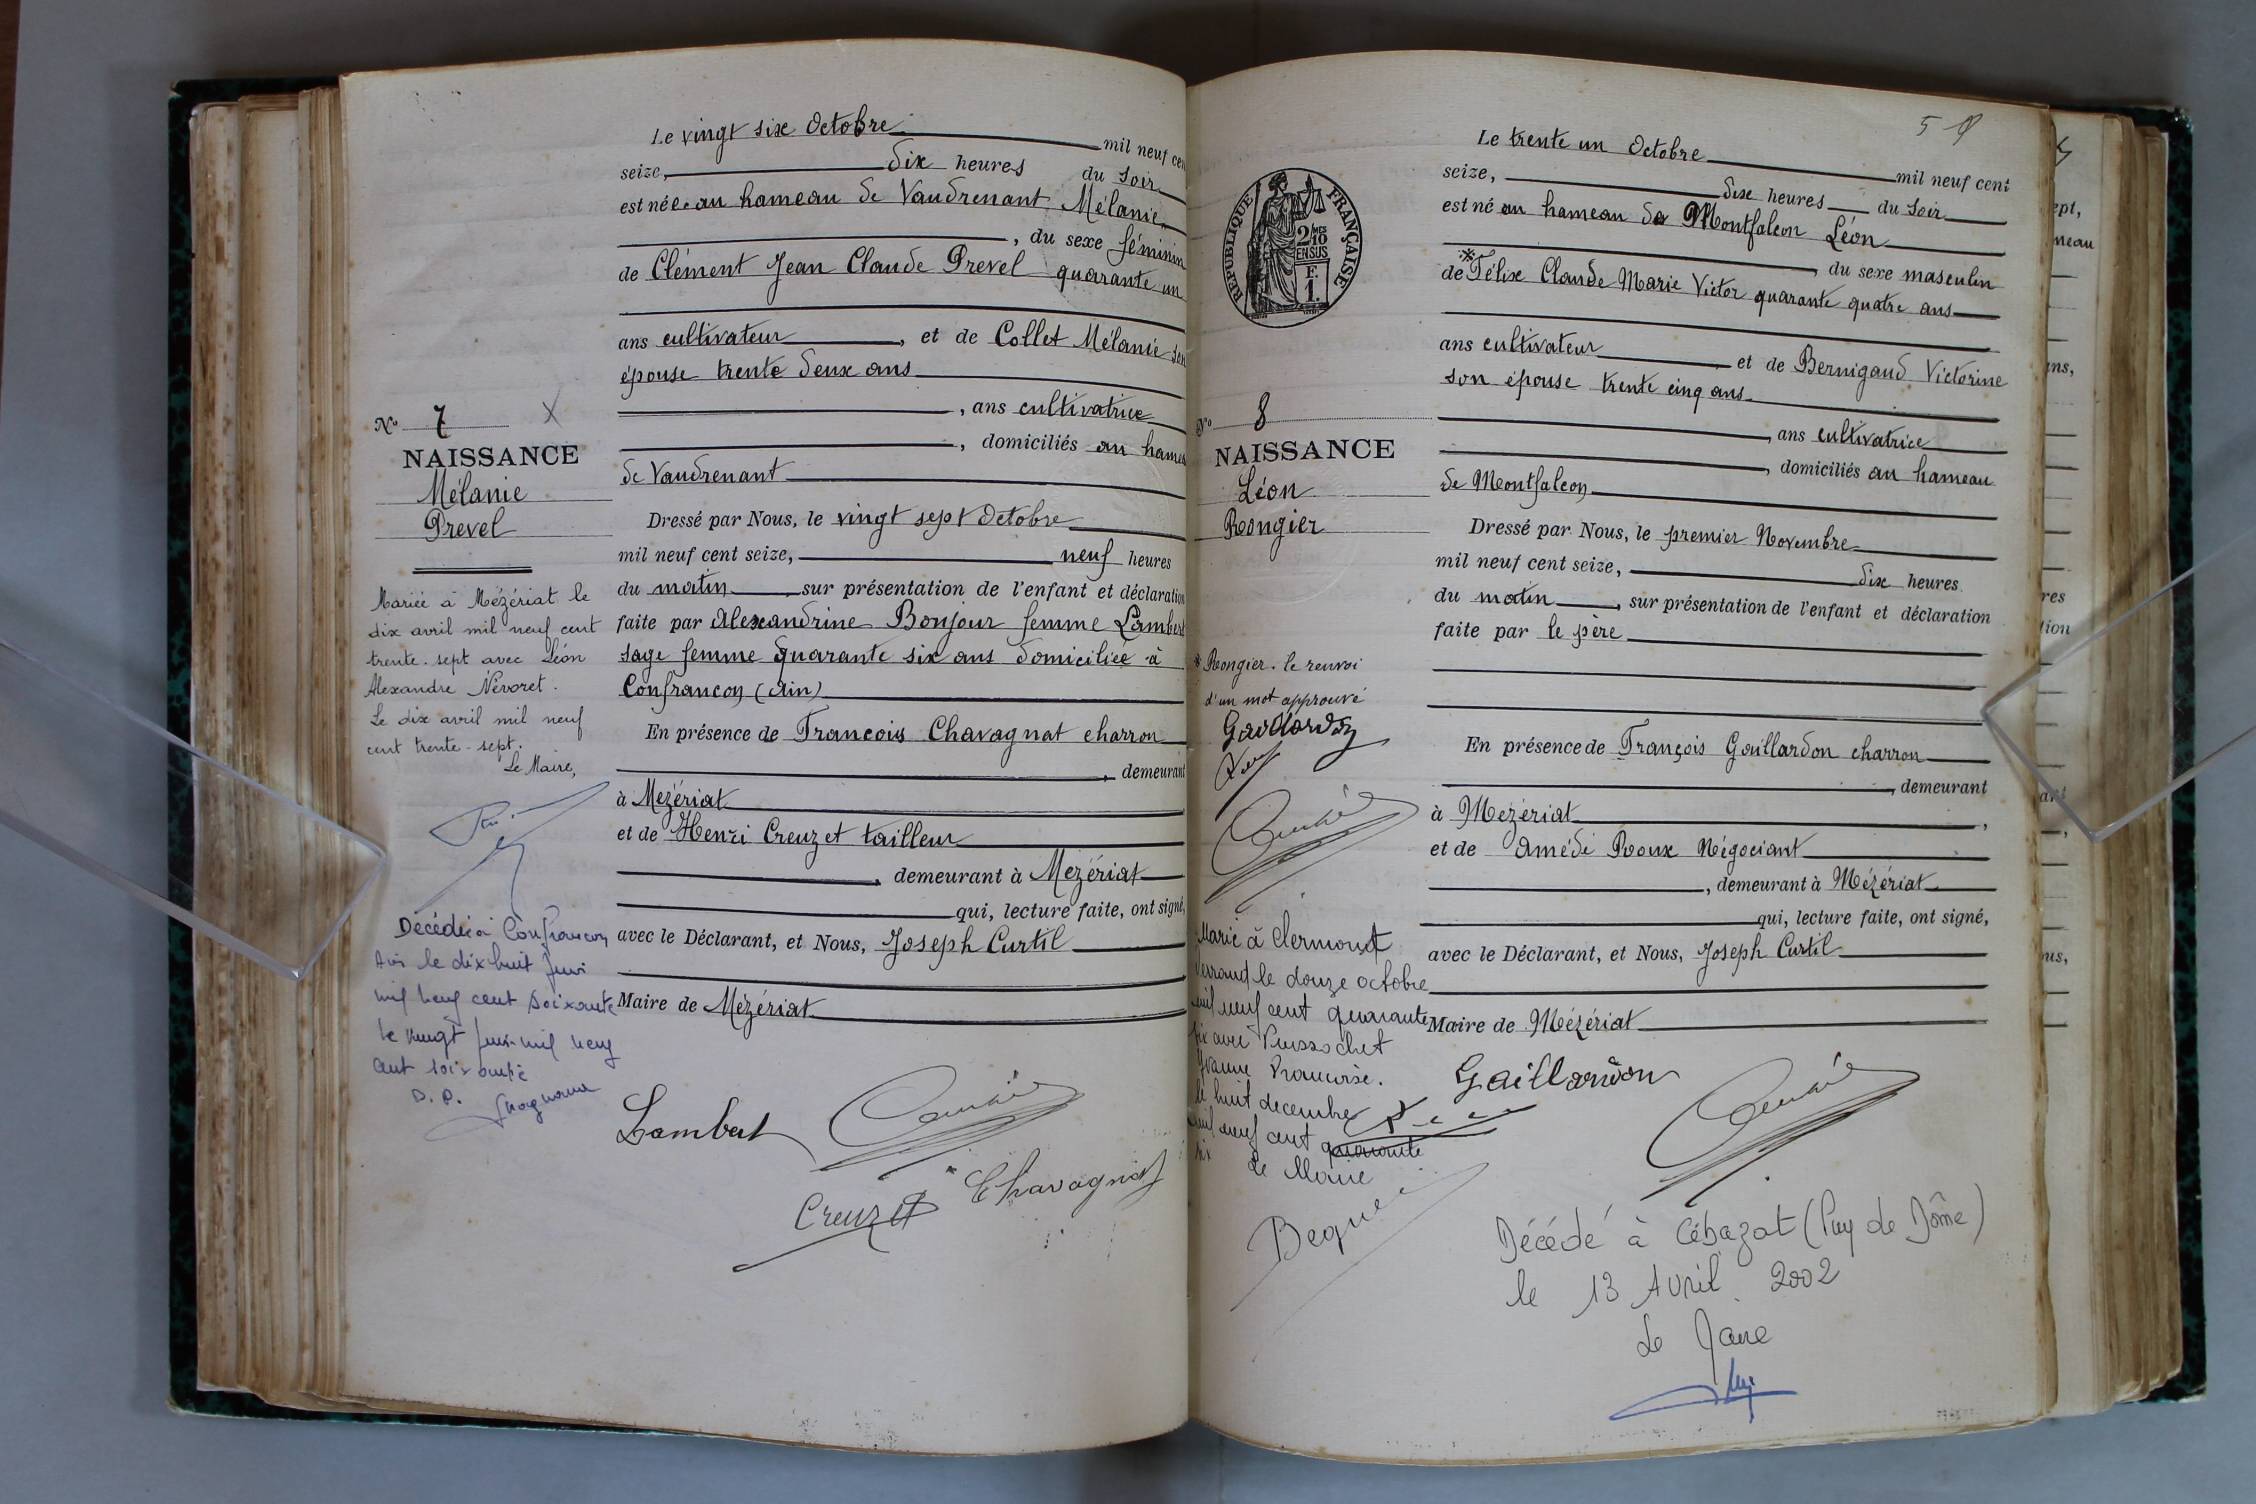 Le vingt six Octobre mil neuf cen
seize, dix heures du soir
est née au hameau de Vaudrenant Mélanie
, du sexe féminin
de Clément Jean Claude Prevel quarante un
ans cultivateur, et de Collet Mélanie son
épouse trente deux ans
, ans cultivatrice
, domiciliés au hameau
de Vaudrenant
Nº 7
NAISSANCE
Mélanie
Prevel
Dressé par Nous, le vingt sept Octobre
mil neuf cent seize, neuf heures
du matin, sur présentation de l'enfant et déclaration
faite par Alexandrine Bonjour femme Lambert
sage femme quarante six ans domiciliée à
Confrancon (Ain)
En présence de Francois Chavagnat charron
, demeurant
à Mezériat
et de Henri Creuzet tailleur
, demeurant à Mezériat
qui, lecture faite, ont signé,
avec le Déclarant, et Nous, Joseph Curtil
Maire de Mézériat
Mariée à Mézériat le
dix avril mil neuf cent
trente-sept avec Léon
Alexandre Nevoret.
Le dix avril mil neuf
cent trente-sept.
Le Maire,
Décédée à Confrancon
Ain le dix huit Juin
mil neuf cent soixante
le vingt juin mil neuf
cent soixante
Lambert
Creuzet
Chavagnat
5
Le trente un Octobre mil neuf cent
seize, dix heures du soir
est né au hameau de Montfalcon Léon
, du sexe masculin
de * Félix Claude Marie Victor quarante quatre ans
ans cultivateur et de Bernigaud Victorine
son épouse trente cinq ans
, ans cultivatrice
, domiciliés au hameau
de Montfalcon
RÉPUBLIQUE FRANÇAISE
2/10 MES
EN SUS
F.
1.
Nº 8
NAISSANCE
Léon
Rongier
Dressé par Nous, le premier Novembre
mil neuf cent seize, dix heures
du matin, sur présentation de l'enfant et déclaration
faite par le père
En présence de François Gaillardon charron
, demeurant
à Mezériat,
et de Amédé Roux Négociant
, demeurant à Mézériat
qui, lecture faite, ont signé,
avec le Déclarant, et Nous, Joseph Curtil
Maire de Mézériat
* Rongier. le renvoi
d'un mot approuvé
Gaillardon
Marié à Clermont
Ferrand le douze octobre
mil neuf cent quarante
six avec
Yvonne
le huit decembre
mil neuf cent quarante
six
Le Maire
Gaillardon
Décédé à Cébazat (Puy de Dôme)
le 13 Avril 2002
Le Maire